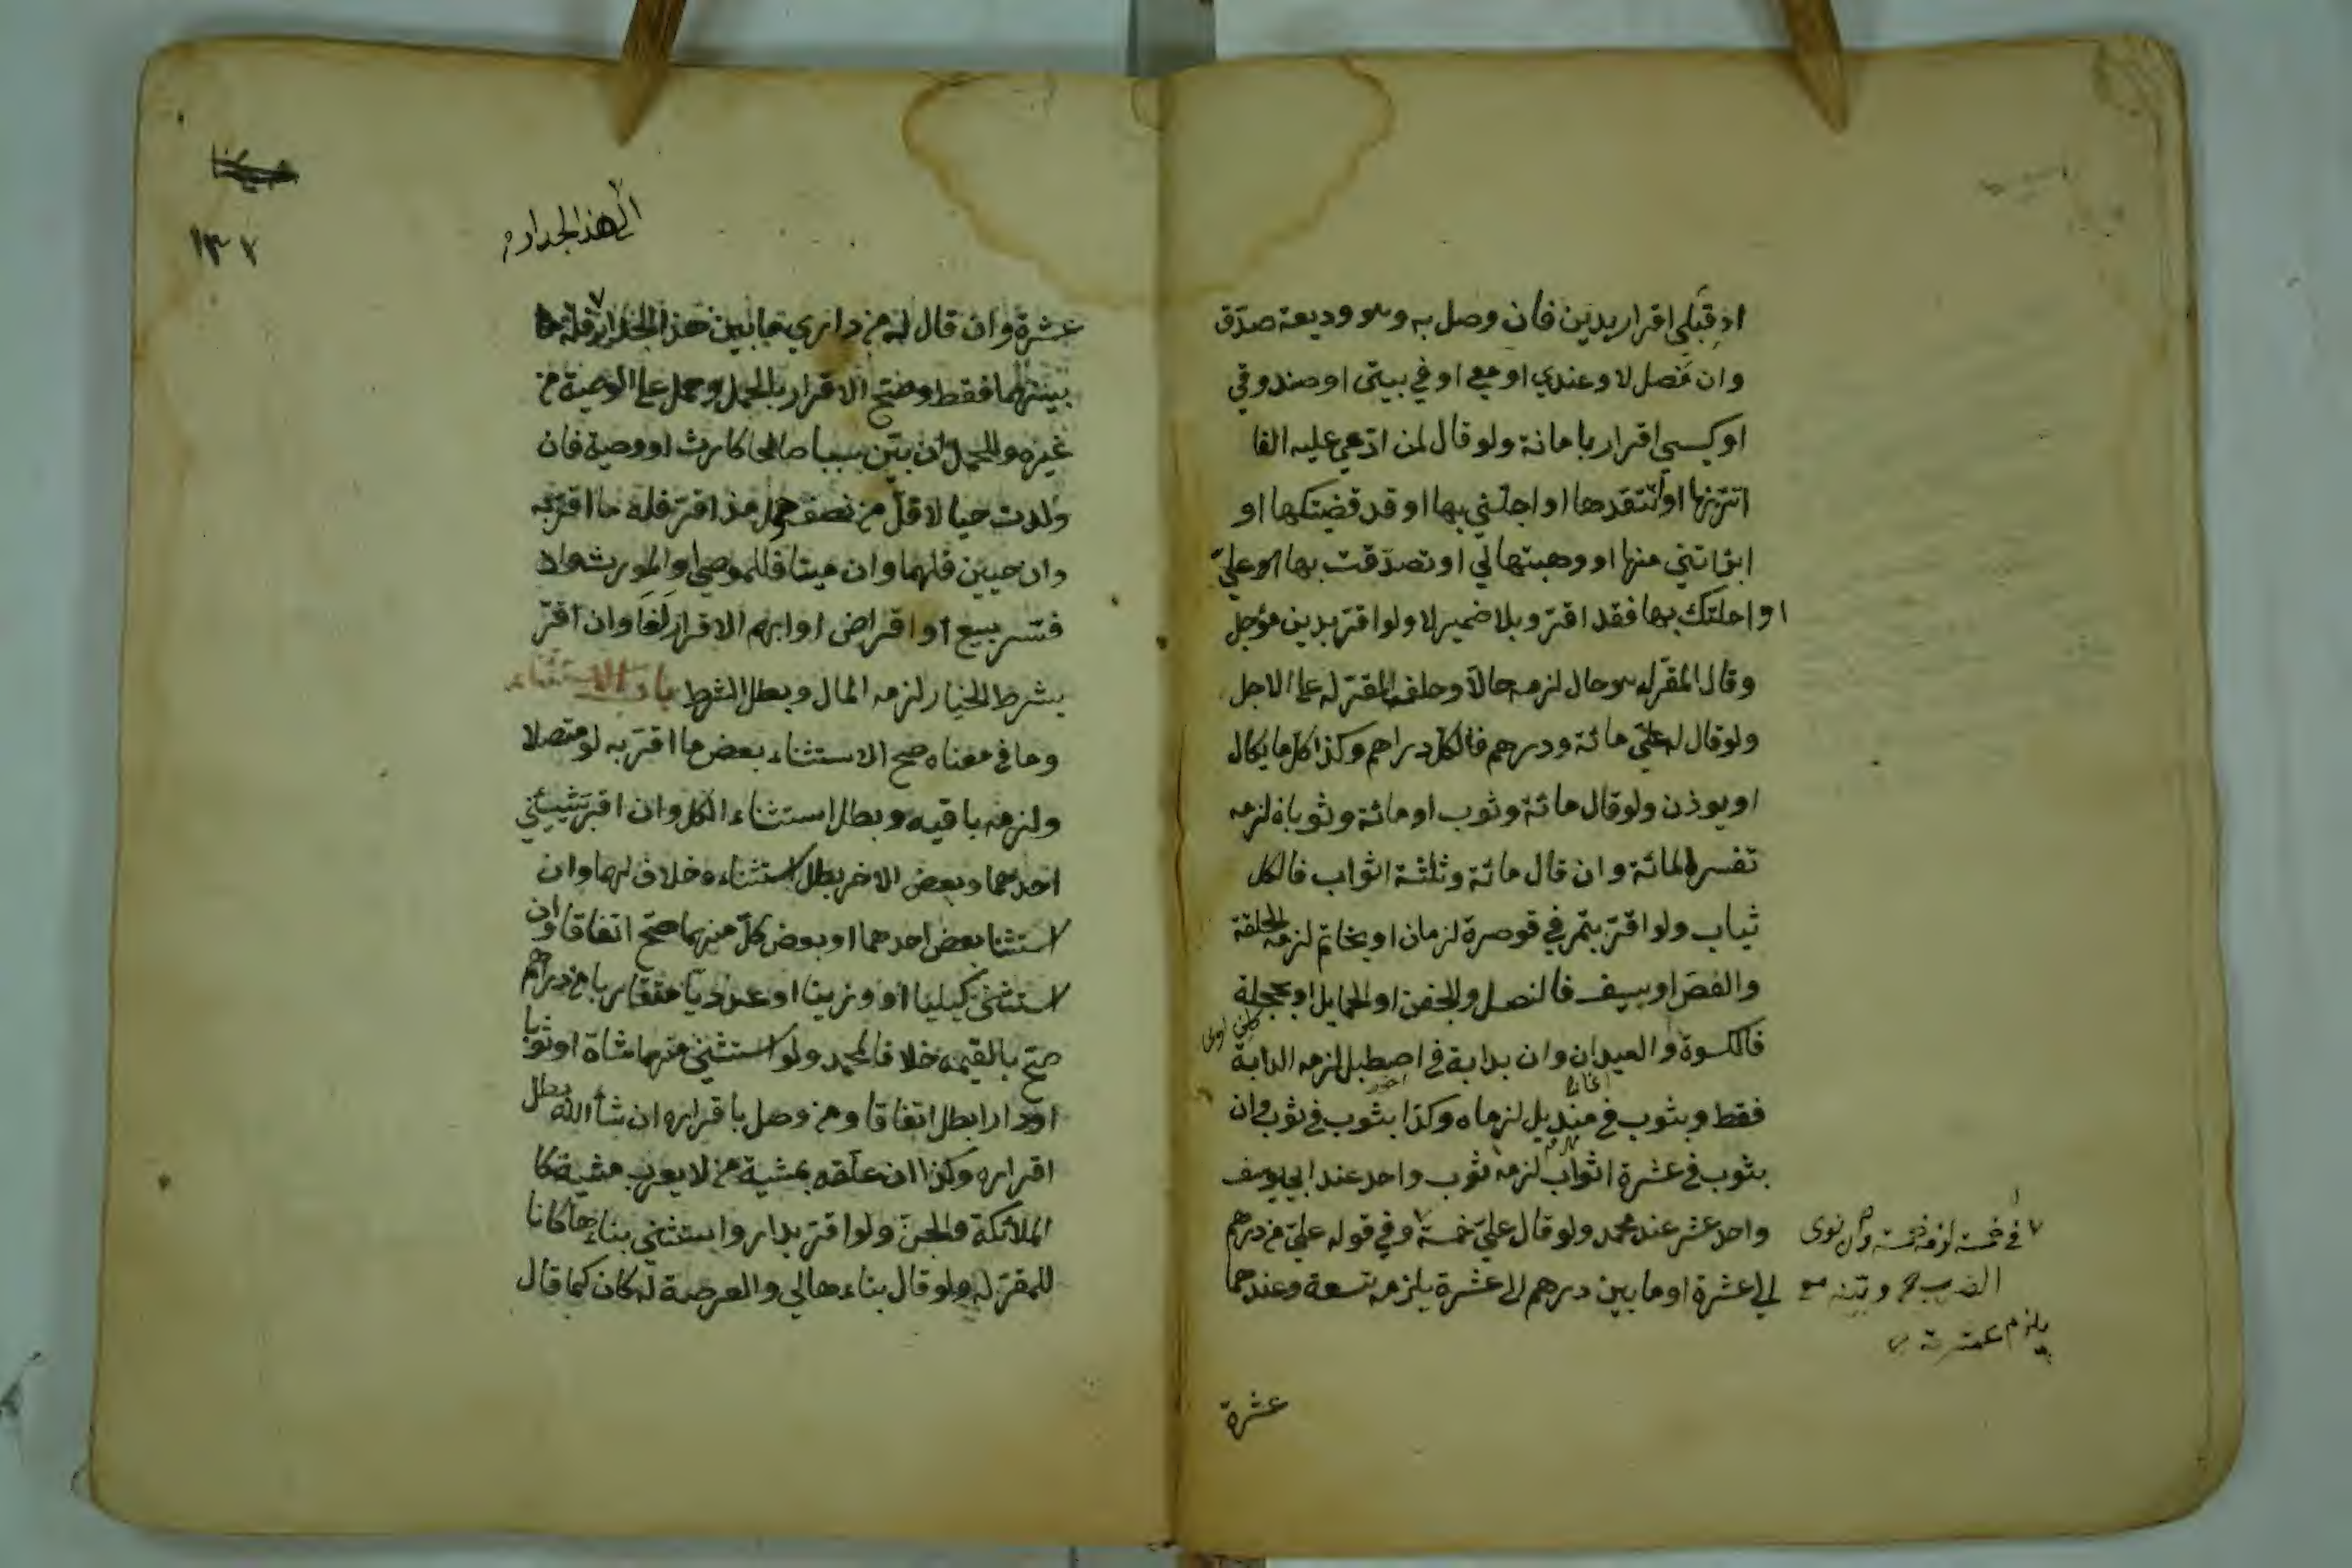 او قبلي اقرار بدين فان وصل به وهو وديعة صدق
وان فصل لا وعندي او معي او في بيتي او صندوقي
او كيسي اقرار بامانة ولو قال لمن ادعي عليه الفا
اتزنها او انتقدها او اجلني بها او قد قضيتكها او
ابراتني منها او وهبتها لي او تصدقت بها علي
او احلتك بها فقد اقر وبلا ضمير لا ولو اقر بدين مؤجل
وقال المقر له هو حال لزمه حالا وحلف المقر له على الاجل
ولو قال له علي مائة ودرهم فالكل دراهم وكذا كل ما يكال
او يوزن ولو قال مائة وثوب او مائة وثوبان لزمه
تفسير المائة وان قال مائة وثلثة اثواب فالكل
ثياب ولو اقر بتمر في قوصرة لزمان او بخاتم لزمه الحلقة
والفص او بسيف فالنصل والجفن او الحمايل او بحجلة
فالكسوة والعيدان وان بدابة في اصطبل لزمه الدابة
فقط وبثوب في منديل لزماه وكذا بثوب في ثوب وان
بثوب في عشرة اثواب لزمه ثوب واحد عند ابي يوسف
واحد عشر عند محمد ولو قال علي خمسة وفي قوله علي من درهم
الى عشرة او ما بين درهم الى عشرة يلزمه تسعة وعندهما
في خمسة لزمه خمسة وان نوى
الضرب
يلزم عشرة
عشرة
١٣٢
الى هذا الجدار
عشرة وان قال له من داري ما بين هذا الجدار فله ما
بينهما فقط وصح الاقرار بالحمل وحمل على الوصية من
غيره وللحمل ان بين سببا صالحا كارث او وصية فان
ولدت حيا لاقل من نصف حول مذ اقر فله ما اقر به
وان حيين فلهما وان ميتا فللموصي او المورث ولا
فسر ببيع او اقراض او ابهم الاقرار لغا وان اقر
بشرط الخيار لزمه المال وبطل الشرط باب الاستثناء
وما في معناه صح الاستثناء بعض ما اقر به لو متصلا
ولزمه باقيه وبطل استثناء الكل وان اقر بشيئين
احدهما وبعض الاخر بطل استثناءه خلاف لهما وان
استثنا بعض احدهما او بعض كل منهما صح اتفاقا وان
استثنى كيليا او وزنيا او عدديا متقاربا من دراهم
صح بالقيمة خلافا لمحمد ولو استثنى منها شاة او ثوبا
او دارا بطل اتفاقا ومن وصل باقراره ان شاء الله بطل
اقراره وكذا ان علقه بمشية من لا يعرف مشيته كا
الملائكة والجن ولو اقر بدار واستثنى بناءها كانا
للمقر له ولو قال بناءها لي والعرصة له كان كما قال